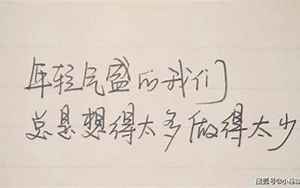 年轻气盛的我们
总是想得太多做得太少